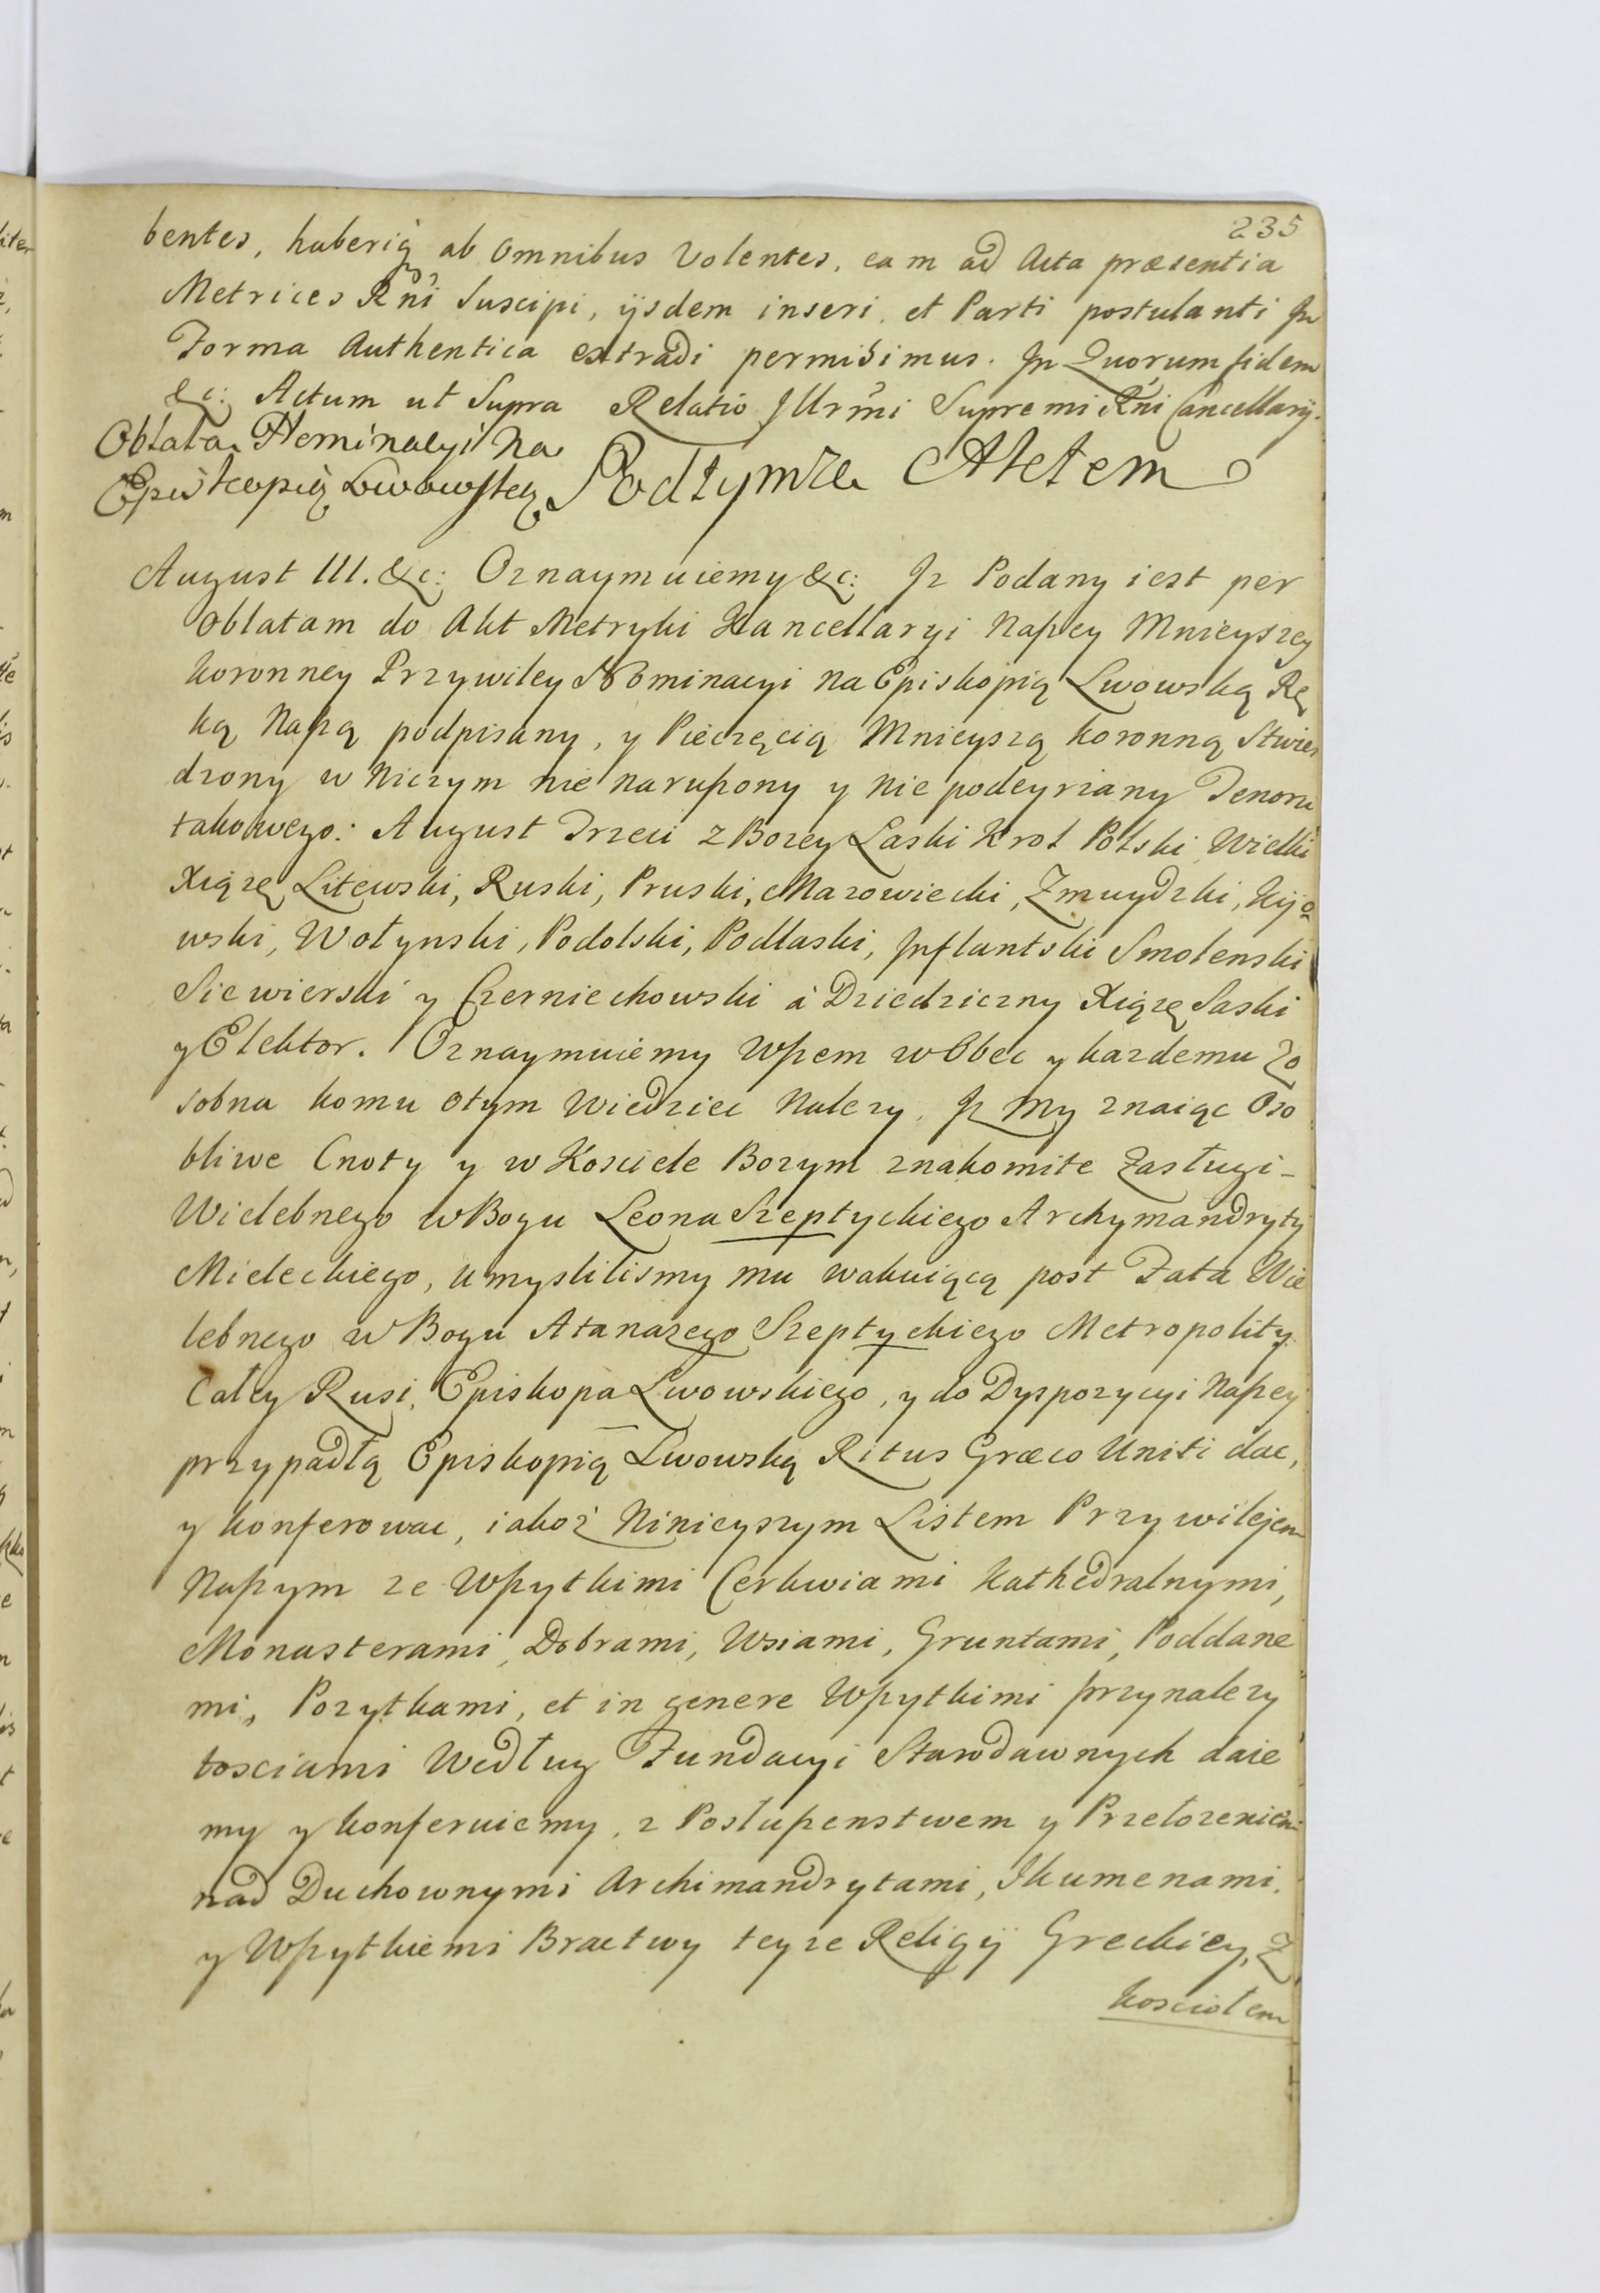 235
bentes, haberiq ab omnibus Volentes, eam ad Acta præsentia
Metrices Rñi Suscipi, ijsdem inseri, et Parti postulanti In
Forma Authentica extradi permisimus. In Quorum fidem
&c: Actum ut Supra Relatio Illrmi Supremi Rñi Cancellarij.
Oblata Nominacyi Na
Episkopią Lwowską Podtymże Aktem
August III. &c: Oznaymuiemy &c: Iz Podany iest per
Oblatam do Akt Metryki Kancellaryi Naszey Mnieyszey
koronney Przywiley Nominacyi na Episkopią Lwowską Rę
ką Naszą podpisany, y Pieczęcią Mnieyszą koronną Stwier
dzony w Niczym nie naruszony y nie podeyrzany Tenoru
takowego: August Trzeci z Bozey Laski Krol Polski Wielki
Xiąze Litewski, Ruski, Pruski, Mazowiecki, Zmuydzki, Kijo
wski, Wołynski, Podolski, Podlaski, Inflantski Smolenski
Siewierski y Czerniechowski à Dziedziczny Xiąze Saski
y Elektor. Oznaymuiemy Wszem w Obec y kazdemu Zo
sobna komu otym Wiedziec Nalezy. Iz My znaiąc Oso
bliwe Cnoty y w Kosciele Bozym znakomite Zasługi-
Wielebnego w Bogu Leona Szeptyckiego Archymandryty
Mieleckiego, umyslilismy mu wakuiącą post Fata Wie
lebnego w Bogu Atanazego Szeptyckiego Metropolity
Całey Rusi, Episkopa Lwowskiego, y do Dyspozycyi Naszey
przypadłą Episkopią Lwowską Ritus Græco Uniti dac,
y konferowac, iakoż Ninieyszym Listem Przywilejem
Naszym ze Wszytkimi Cerkwiami Kathedralnymi,
Monasterami, Dobrami, Wsiami, Gruntami, Poddane
mi, Pozytkami, et in genere Wszytkimi przynalezy
tosciami Według Fundacyi Starodawnych daie
my y konferuiemy, z Posłuszenstwem y Przełozeniem
nad Duchownymi Archimandrytami, Ihumenami,
y Wszytkiemi Bractwy teyze Religij Greckiey, Z
kosciołem